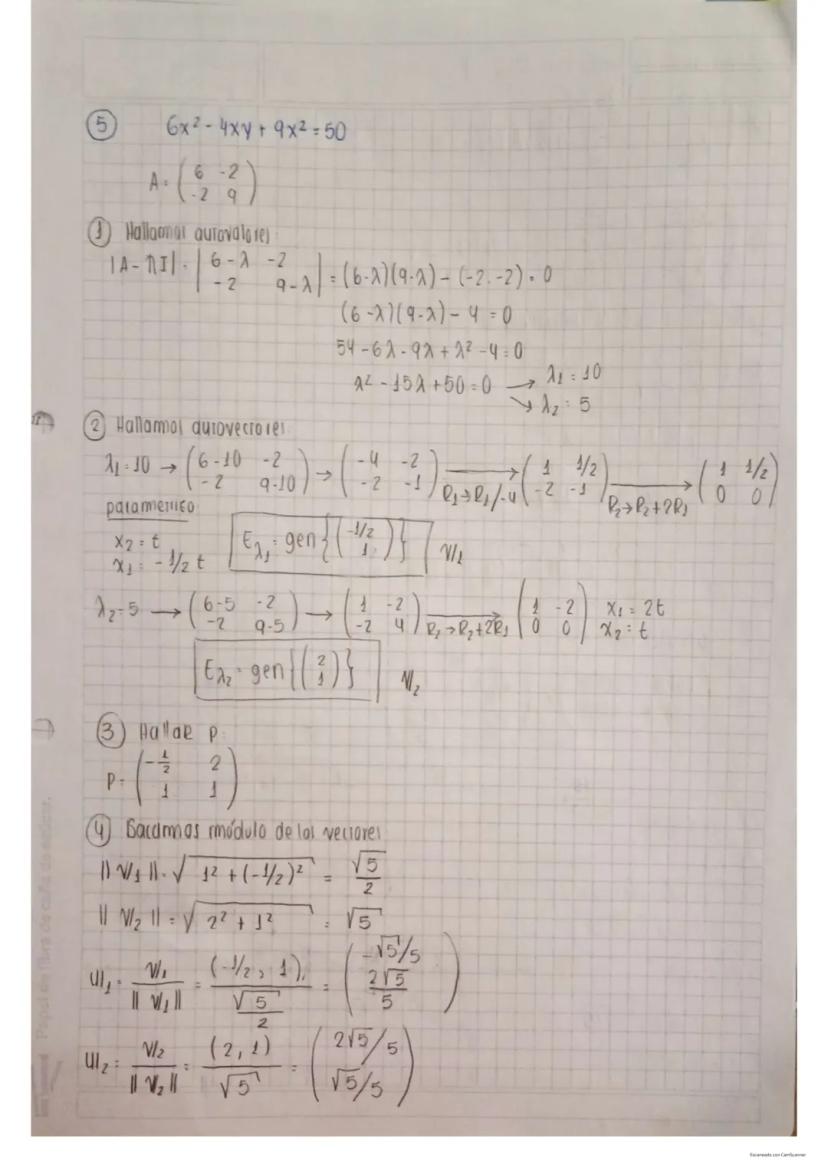 5 6x² - 4xy + 9x² = 50
A = ( 6 -2 ; -2 9 )
1 Hallamos autovalores:
|A - λI| = | 6-λ -2 ; -2 9-λ | = (6-λ)(9-λ) - (-2.-2) = 0
(6-λ)(9-λ) - 4 = 0
54 - 6λ - 9λ + λ² - 4 = 0
λ² - 15λ + 50 = 0 → λ1 = 10
↘ λ2 = 5
2 Hallamos autovectores
λ1 = 10 → ( 6-10 -2 ; -2 9-10 ) → ( -4 -2 ; -2 -1 ) → R1→R1/-4 ( 1 1/2 ; -2 -1 ) → R2→R2+2R1 ( 1 1/2 ; 0 0 )
parametrico
x2 = t
x1 = -1/2 t
Eλ1 = gen {( -1/2 ; 1 )} V1
λ2 = 5 → ( 6-5 -2 ; -2 9-5 ) → ( 1 -2 ; -2 4 ) → R2→R2+2R1 ( 1 -2 ; 0 0 ) x1 = 2t
x2 = t
Eλ2 = gen {( 2 ; 1 )} V2
3 Hallar P:
P = ( -1/2 2 ; 1 1 )
4 Sacamos módulo de los vectores
||V1|| = √(1² + (-1/2)²) = √5/2
||V2|| = √(2² + 1²) = √5
U1 = V1/||V1|| = (-1/2, 1)/(√5/2) = ( -√5/5 ; 2√5/5 )
U2 = V2/||V2|| = (2, 1)/√5 = ( 2√5/5 ; √5/5 )
Escaneado con CamScanner